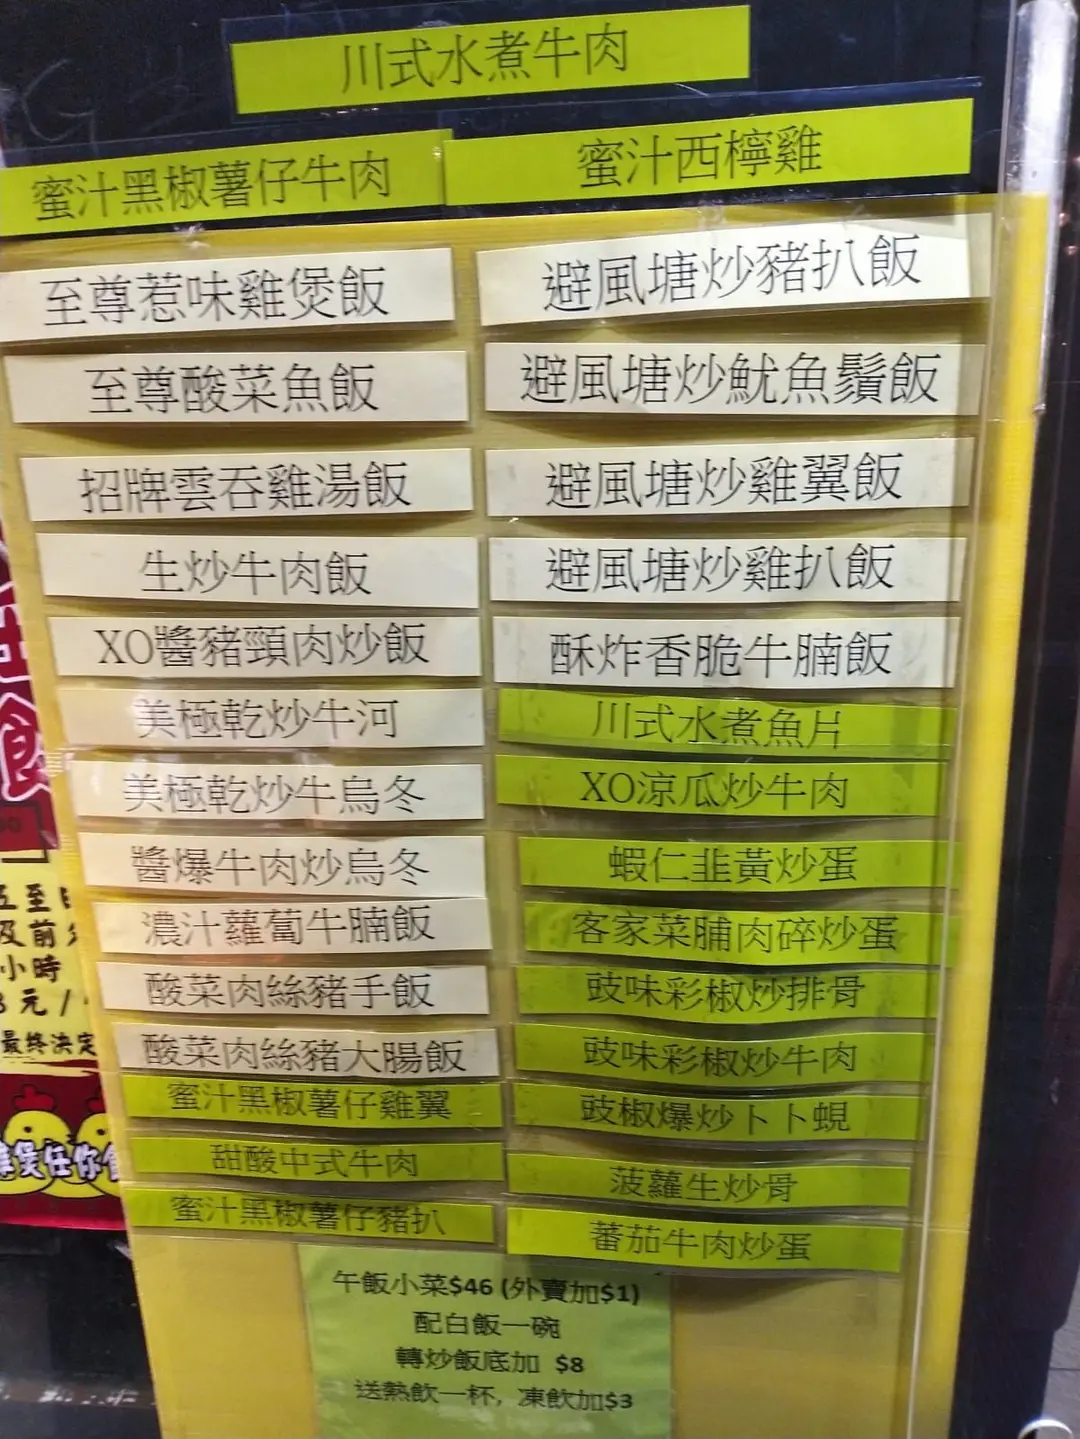 川式水煮牛肉
蜜汁黑椒薯仔牛肉
蜜汁西檸雞
至尊惹味雞煲飯
至尊酸菜魚飯
招牌雲吞雞湯飯
生炒牛肉飯
XO醬豬頸肉炒飯
美極乾炒牛河
美極乾炒牛烏冬
醬爆牛肉炒烏冬
濃汁蘿蔔牛腩飯
酸菜肉絲豬手飯
酸菜肉絲豬大腸飯
蜜汁黑椒薯仔雞翼
甜酸中式牛肉
蜜汁黑椒薯仔豬扒
避風塘炒豬扒飯
避風塘炒魷魚鬚飯
避風塘炒雞翼飯
避風塘炒雞扒飯
酥炸香脆牛腩飯
川式水煮魚片
XO涼瓜炒牛肉
蝦仁韭黃炒蛋
客家菜脯肉碎炒蛋
豉味彩椒炒排骨
豉味彩椒炒牛肉
豉椒爆炒卜卜蜆
菠蘿生炒骨
蕃茄牛肉炒蛋
午飯小菜$46 (外賣加$1)
配白飯一碗
轉炒飯底加 $8
送熱飲一杯, 凍飲加$3
食
五至
及前
小時
元/
最終決定
煲任你